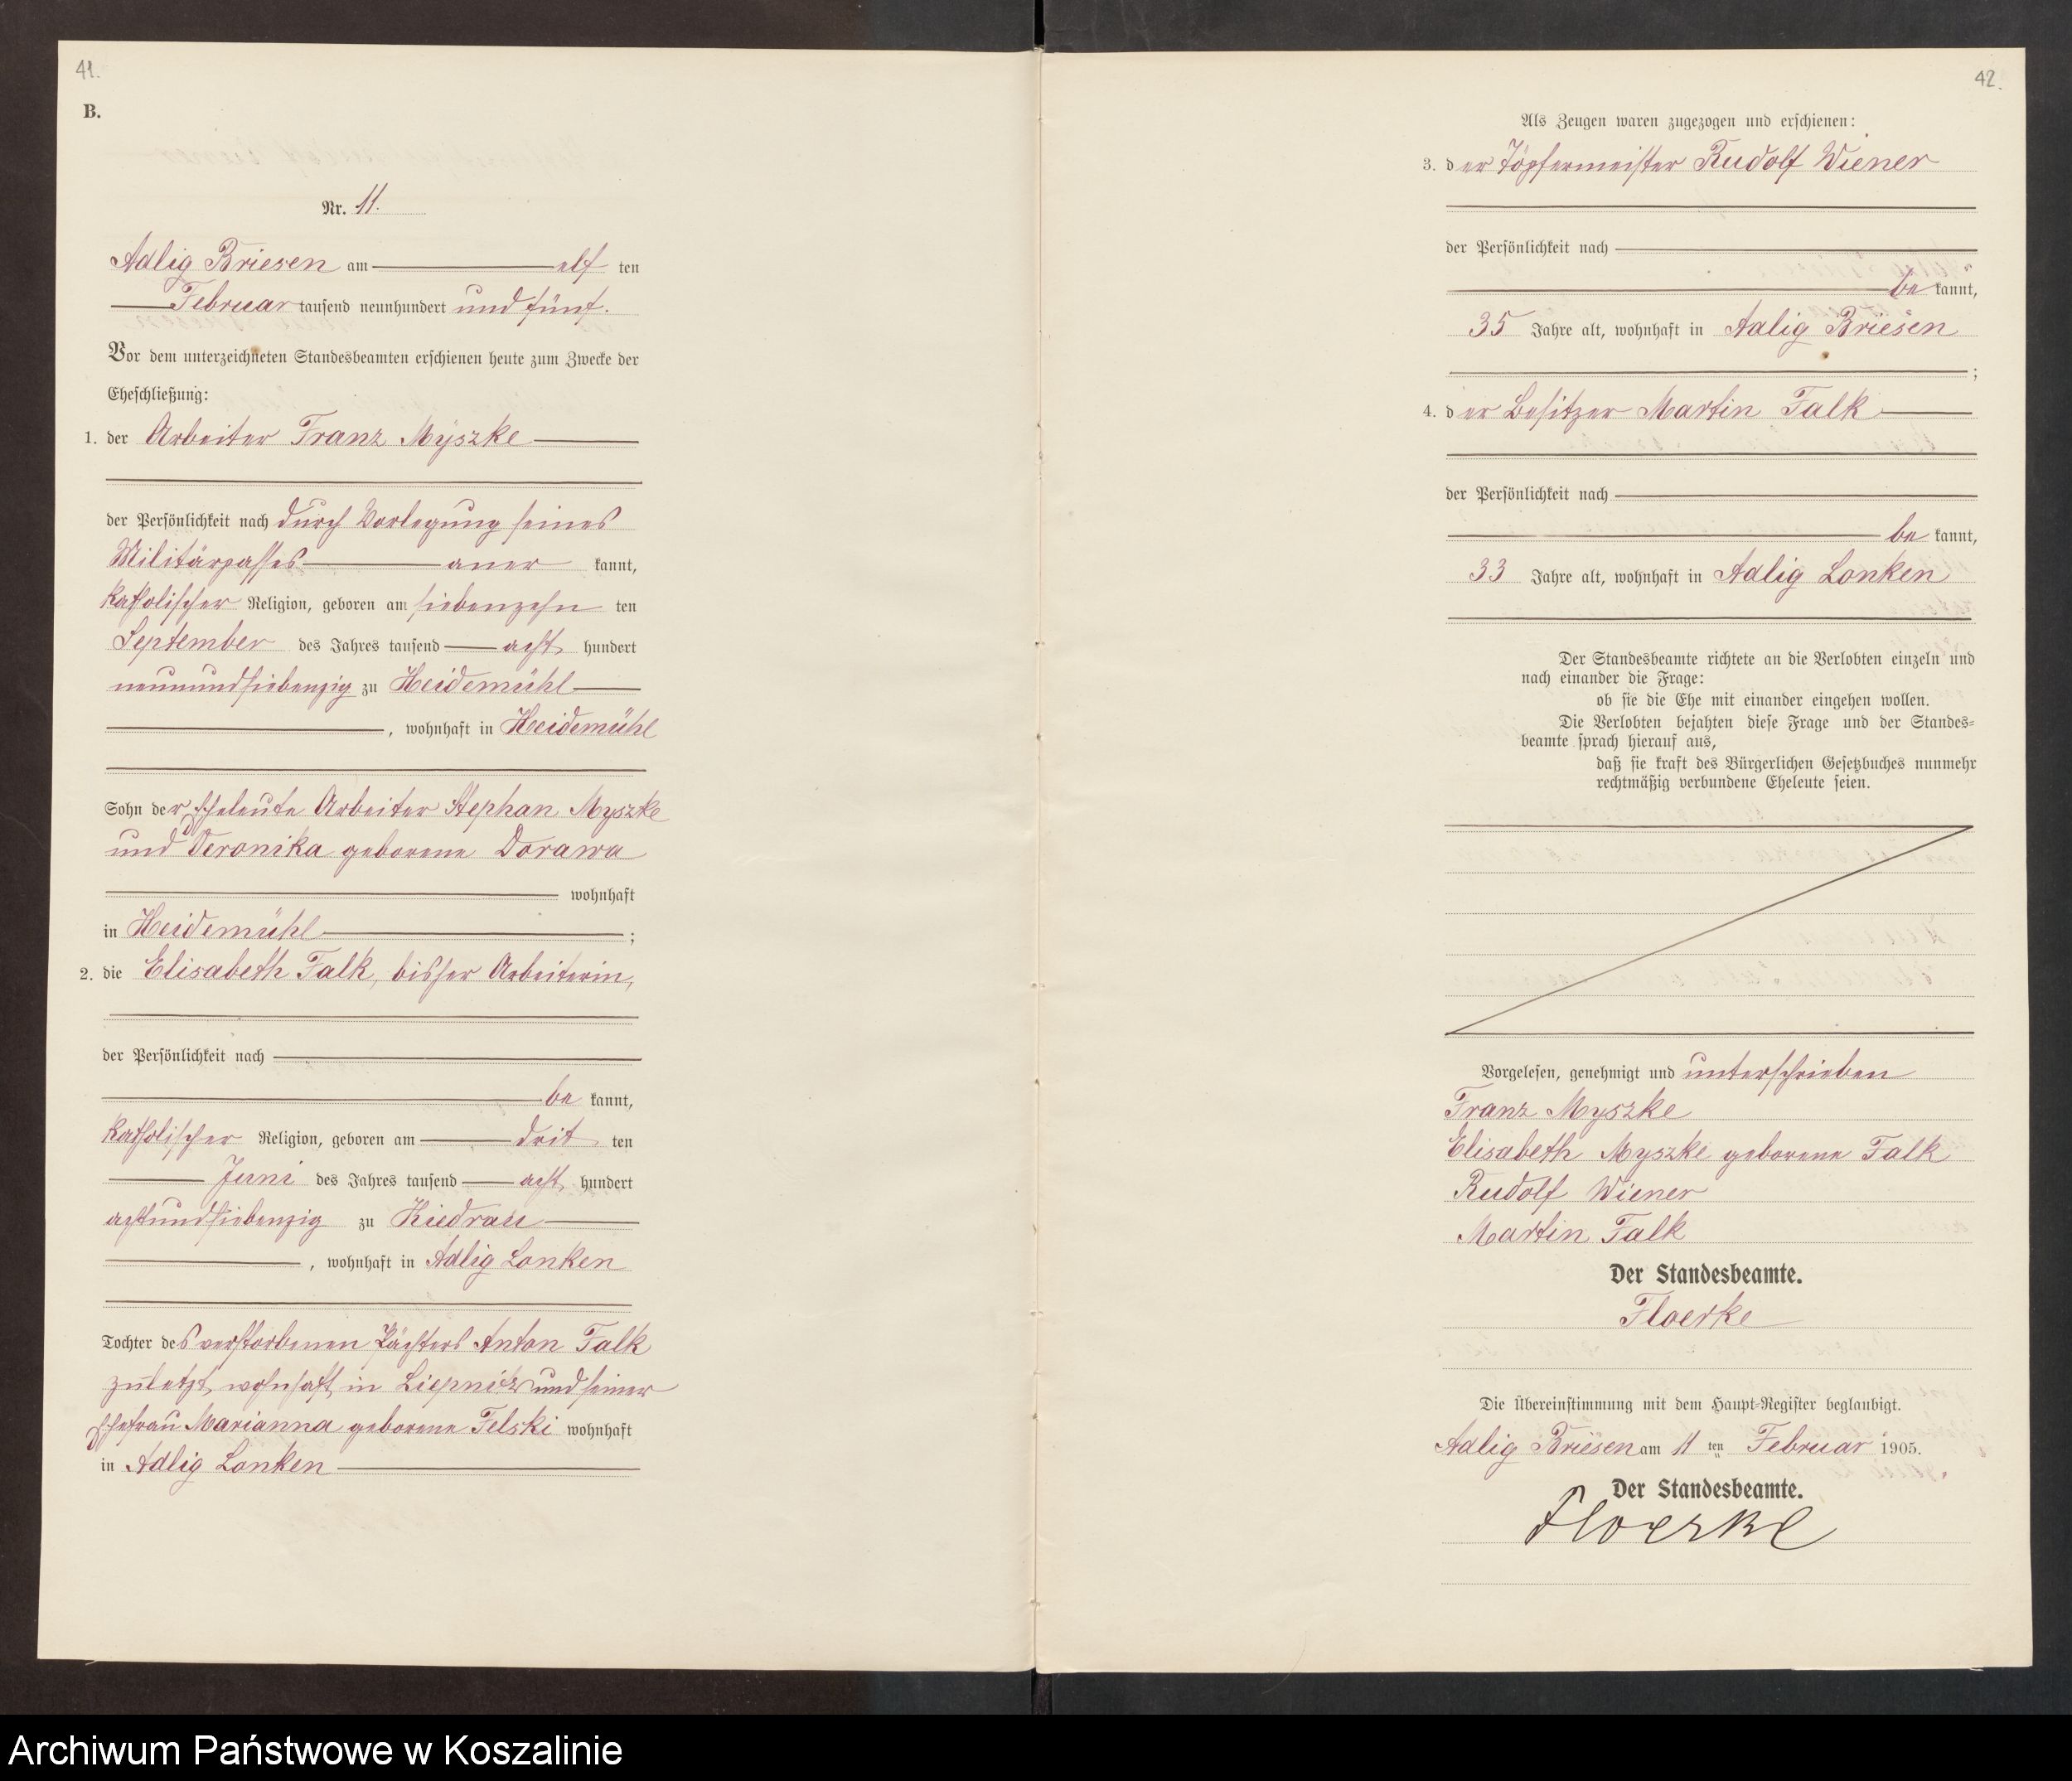 41.
B.
Nr. 11.
Adlig Briesen am elf ten
Februar tausend neunhundert und fünf.
Vor dem unterzeichneten Standesbeamten erschienen heute zum Zwecke der
Eheschließung:
1. der Arbeiter Franz Myszke
der Persönlichkeit nach durch Vorlegung seines
Militärpasses aner kannt,
katholischer Religion, geboren am siebenzehn ten
September des Jahres tausend acht hundert
neunundsiebenzig zu Heidemühl
, wohnhaft in Heidemühl
Sohn der Eheleute Arbeiter Stephan Myszke
und Veronika geborene Dorawa
wohnhaft
in Heidemühl ;
2. die Elisabeth Falk, bisher Arbeiterin,
der Persönlichkeit nach
be kannt,
katholischer Religion, geboren am drit ten
Juni des Jahres tausend acht hundert
achtundsiebenzig zu Kiedrau
, wohnhaft in Adlig Lonken
Tochter des verstorbenen Pächters Anton Falk
zuletzt wohnhaft in Liepnitz und seiner
Ehefrau Marianna geborene Felski wohnhaft
in Adlig Lonken
42.
Als Zeugen waren zugezogen und erschienen:
3. der Töpfermeister Rudolf Wiener
der Persönlichkeit nach
be kannt,
35 Jahre alt, wohnhaft in Adlig Briesen
;
4. der Besitzer Martin Falk
der Persönlichkeit nach
be kannt,
33 Jahre alt, wohnhaft in Adlig Lonken
Der Standesbeamte richtete an die Verlobten einzeln und
nach einander die Frage:
ob sie die Ehe mit einander eingehen wollen.
Die Verlobten bejahten diese Frage und der Standes-
beamte sprach hierauf aus,
daß sie kraft des Bürgerlichen Gesetzbuches nunmehr
rechtmäßig verbundene Eheleute seien.
Vorgelesen, genehmigt und unterschrieben
Franz Myszke
Elisabeth Myszke geborene Falk
Rudolf Wiener
Martin Falk
Der Standesbeamte.
Floerke
Die Übereinstimmung mit dem Haupt-Register beglaubigt.
Adlig Briesen am 11 ten Februar 1905.
Der Standesbeamte.
Floerke
Archiwum Państwowe w Koszalinie